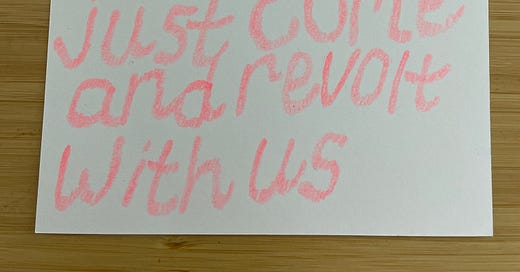 just come
and revolt
with us